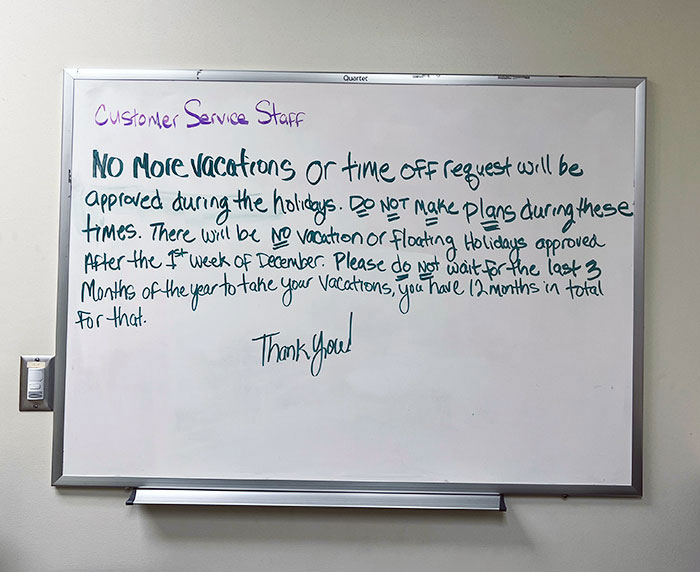 Quartet
Customer Service Staff
No More vacations or time off request will be
approved during the holidays. Do NOT make plans during these
times. There will be NO vacation or floating Holidays approved
After the 1st week of December. Please do not wait for the last 3
Months of the year to take your vacations, you have 12 months in total
for that.
Thank you!